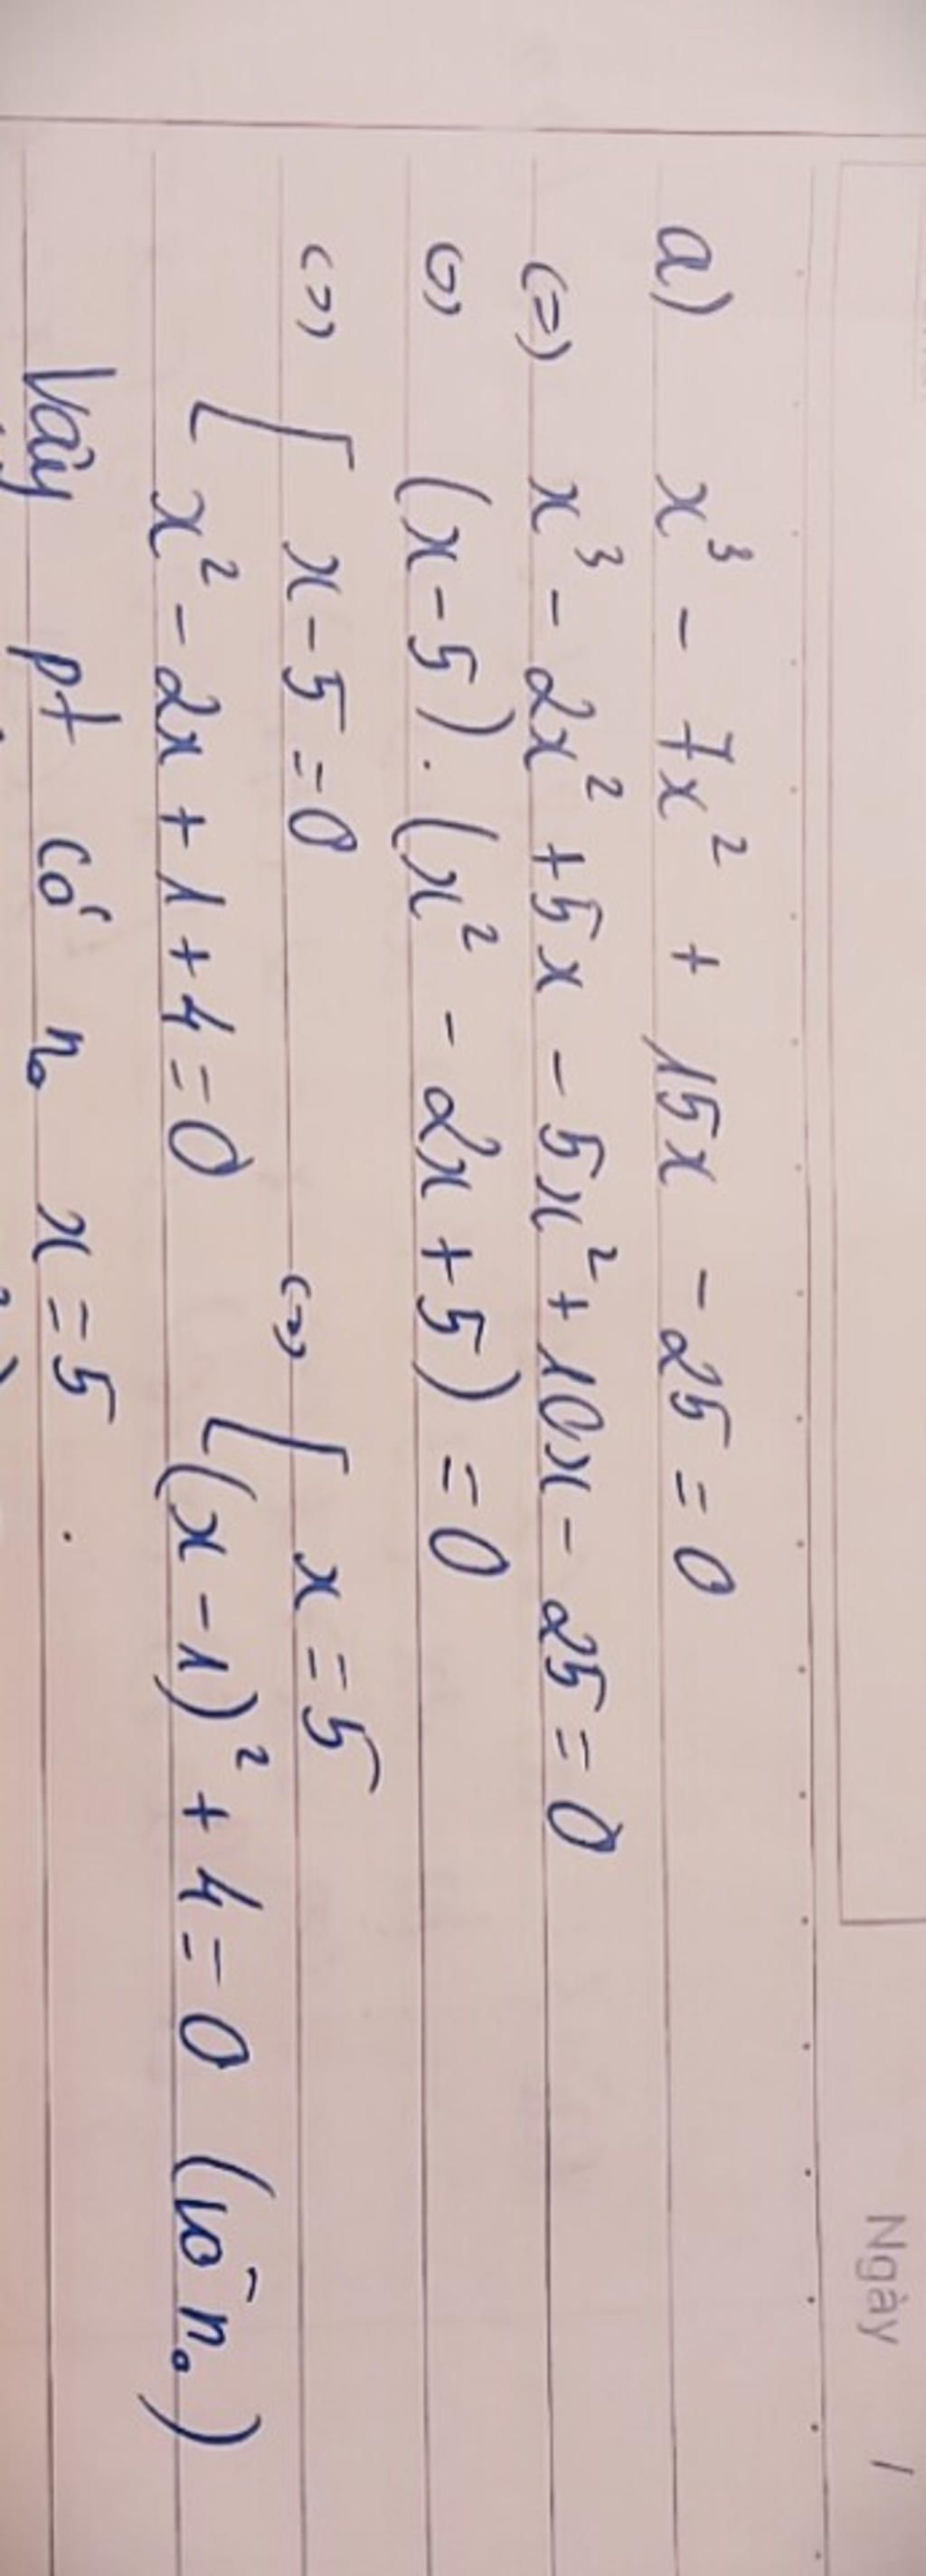 Ngày /
a) x³ - 7x² + 15x - 25 = 0
(=) x³ - 2x² + 5x - 5x² + 10x - 25 = 0
(=) (x - 5) . (x² - 2x + 5) = 0
<=> [ x - 5 = 0 <=> [ x = 5
x² - 2x + 1 + 4 = 0 (x - 1)² + 4 = 0 (vô n₀)
Vậy pt có n₀ x = 5 .